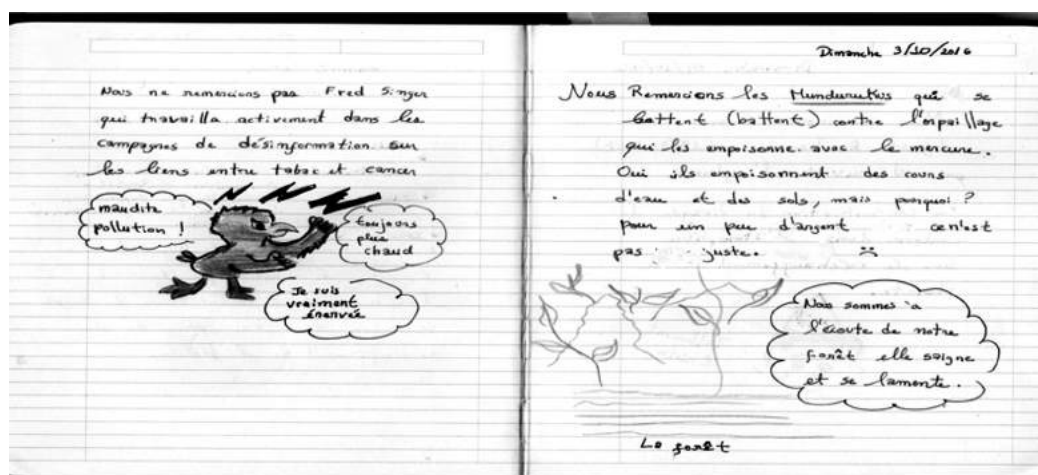 Nous ne remercions pas Fred Singer
qui travailla activement dans les
campagnes de désinformation sur
les liens entre tabac et cancer
maudite
pollution !
toujours
plus
chaud
Je suis
vraiment
énervée
Dimanche 3/10/2016
Nous Remercions les Mundurukus qui se
battent (battent) contre l'orpaillage
qui les empoisonne avec le mercure.
Oui ils empoisonnent des cours
d'eau et des sols, mais porquoi ?
pour un peu d'argent ce n'est
pas juste.
Nous sommes à
l'écoute de notre
forêt elle saigne
et se lamente.
La forêt